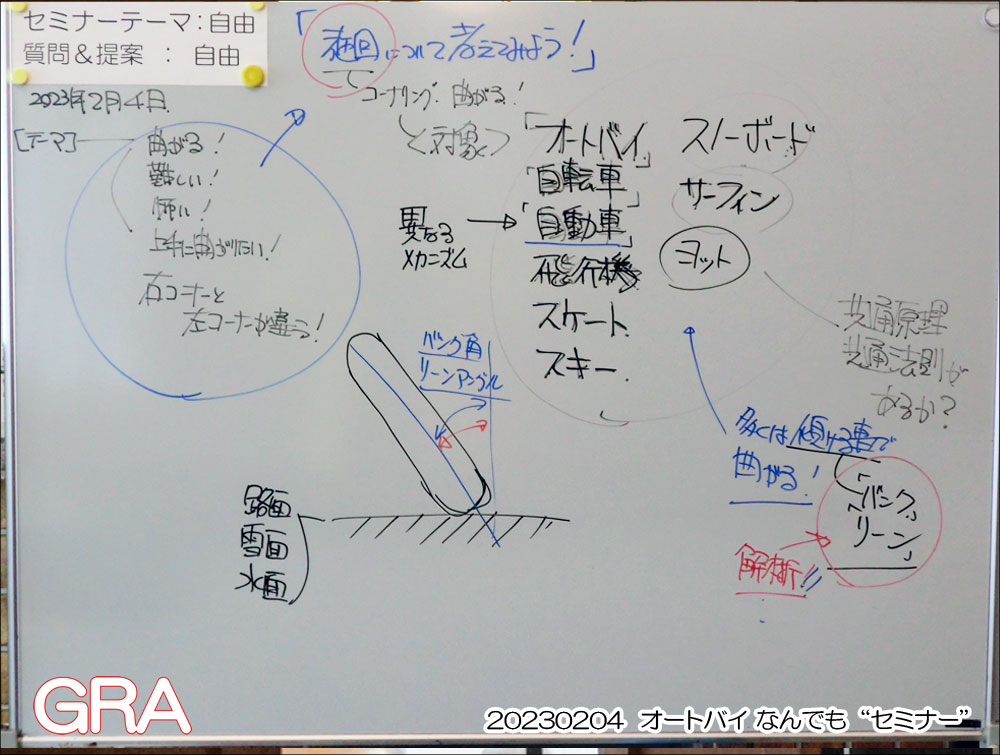 セミナーテーマ：自由
質問＆提案 ： 自由
2023年2月4日
「旋回について考えてみよう！」
コーナリング 曲がる！
[テーマ]
曲がる！
難しい！
怖い！
上手に曲がりたい！
右コーナーと
左コーナーが違う！
〈対象〉
「オートバイ」
「自転車」
「自動車」
飛行機
スケート
スキー
スノーボード
サーフィン
ヨット
異なる
メカニズム
共通原理
共通法則が
あるか？
バンク角
リーンアングル
多くは傾ける事で
曲がる！
「バンク」
「リーン」
解析!!
路面
雪面
氷面
GRA
20230204 オートバイ なんでも “セミナー”